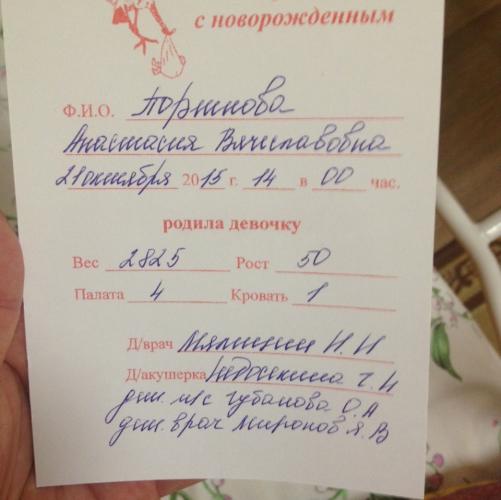 с новорожденным
Ф.И.О. Поршнова
Анастасия Вячеславовна
21 октября 2015 г. 14 в 00 час.
родила девочку
Вес 2825 Рост 50
Палата 4 Кровать 1
Д/врач И.И
Д/акушерка Недосекина Т.И
дет. м/с Губанова О.А
дет. врач Миронов Я.В